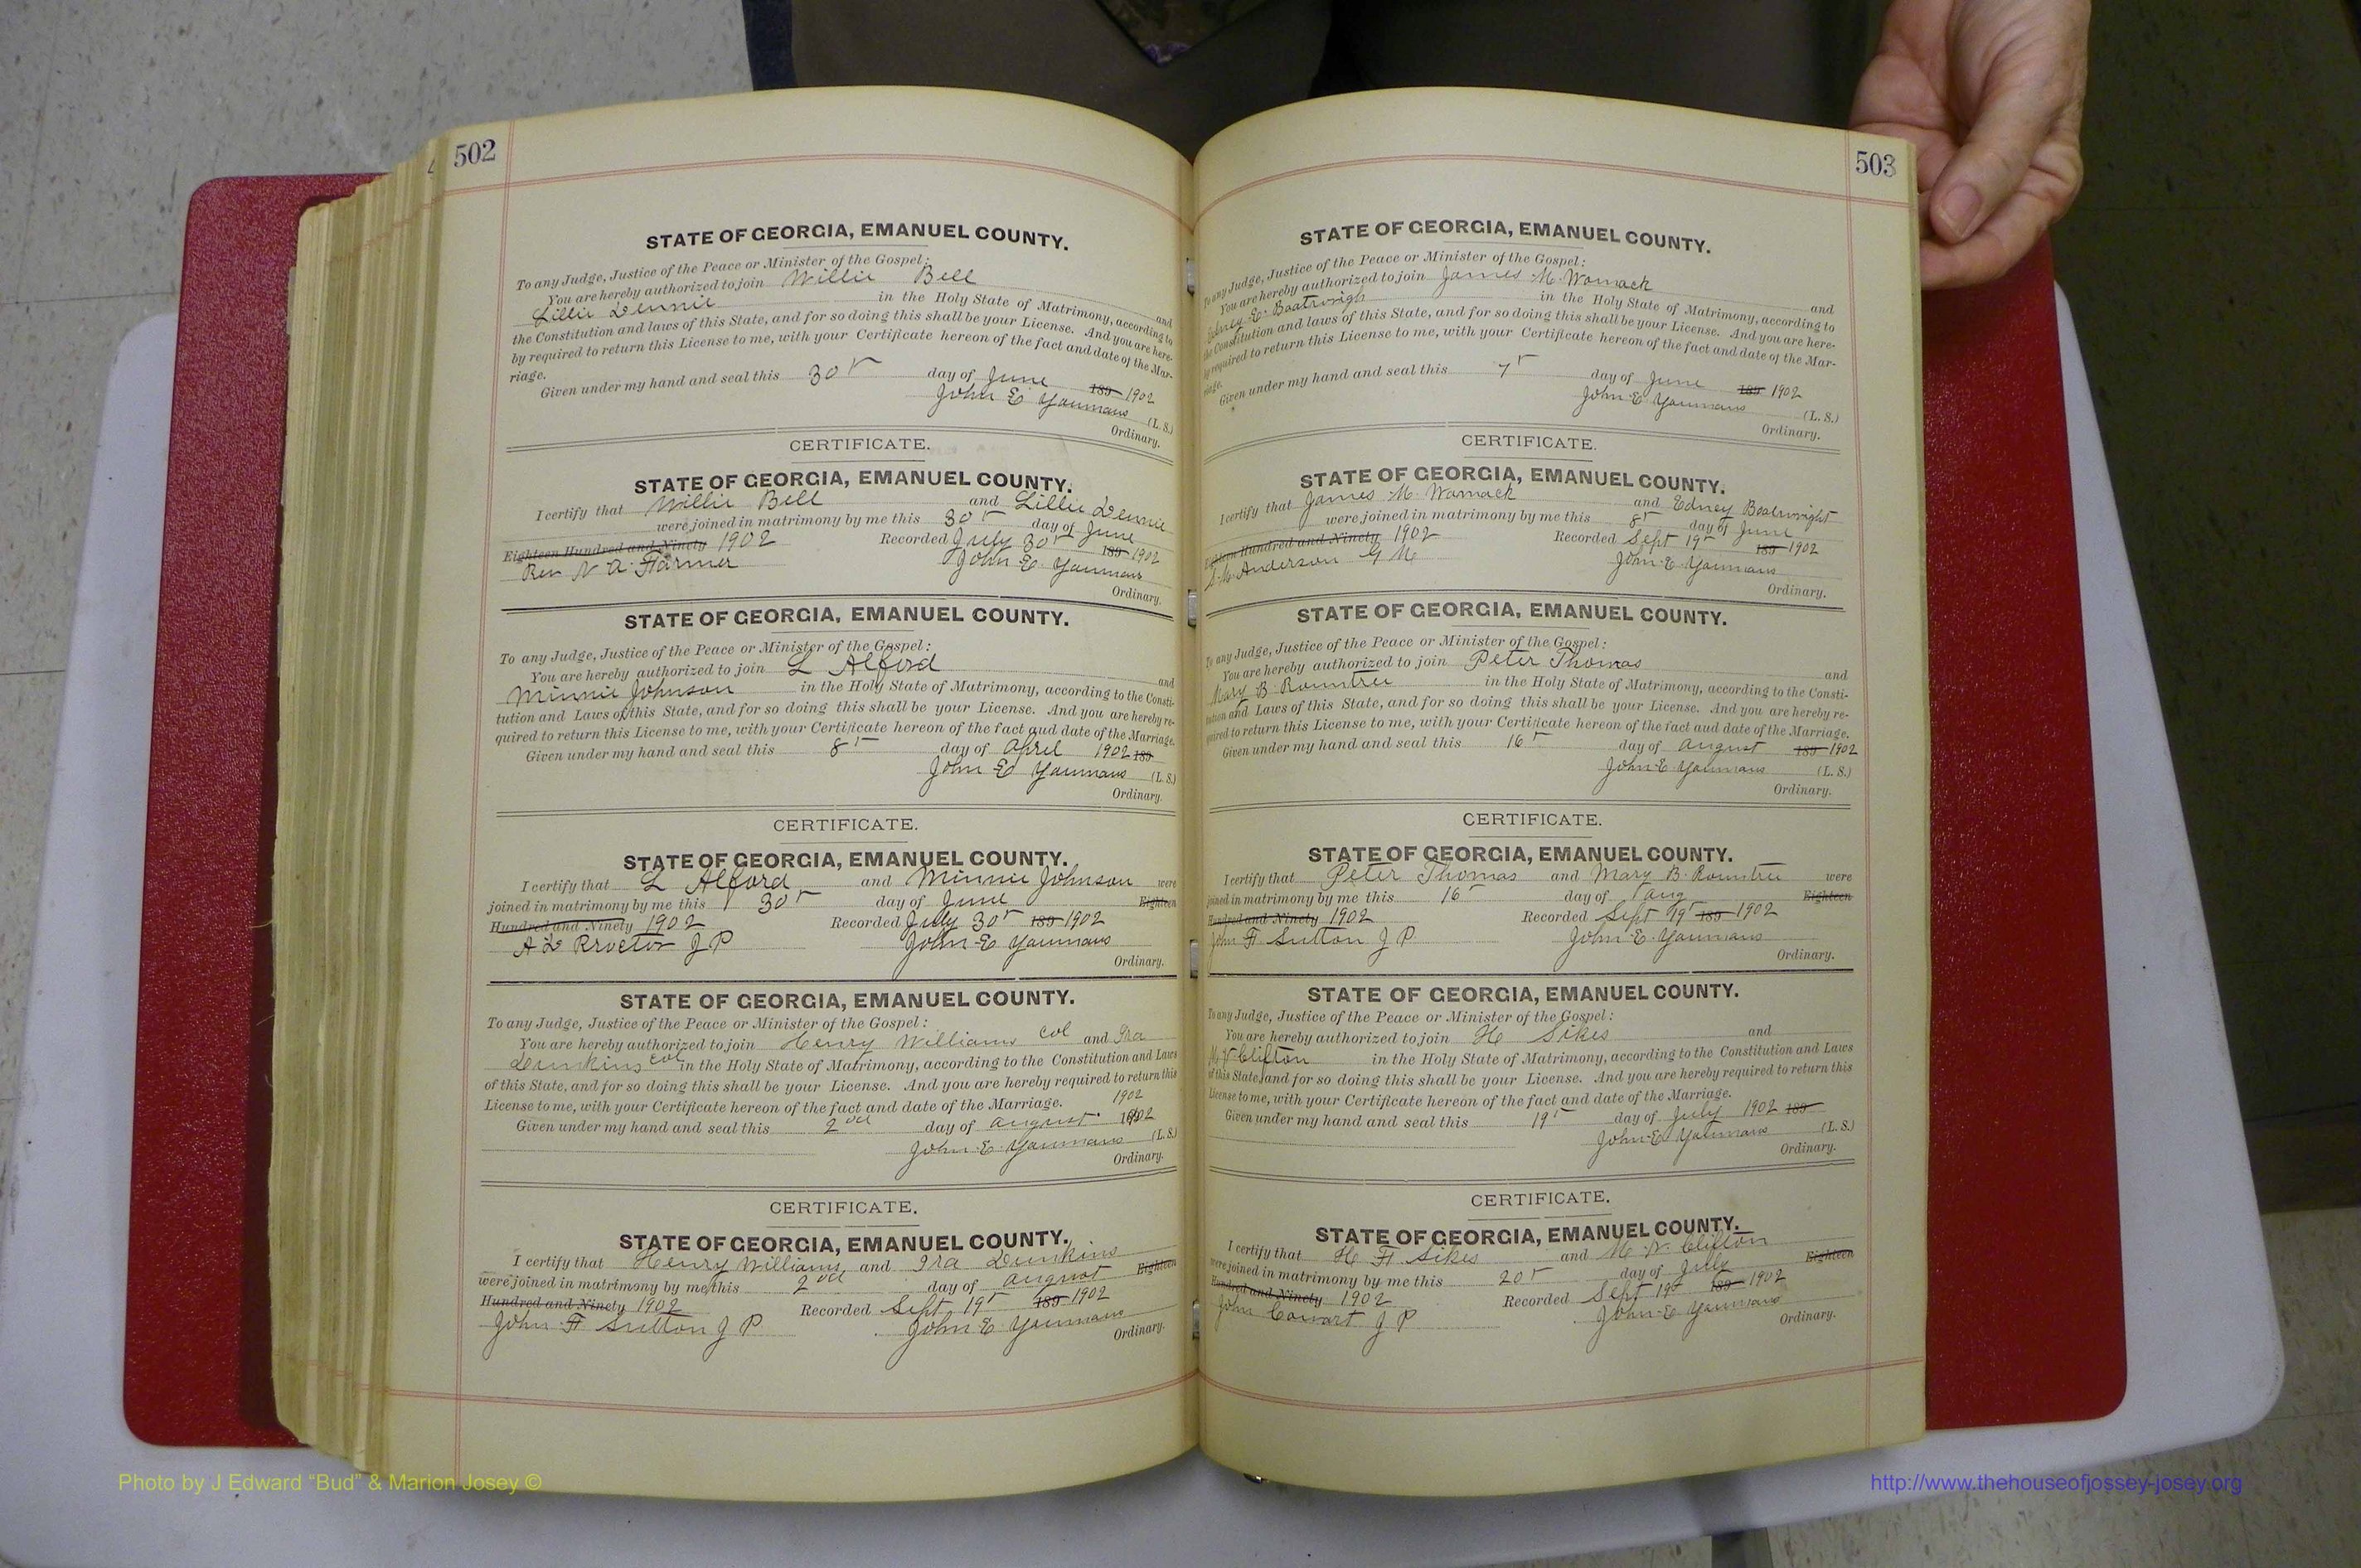 502
STATE OF GEORGIA, EMANUEL COUNTY.
To any Judge, Justice of the Peace or Minister of the Gospel:
You are hereby authorized to join Willie Bell and
Lillie Dennie in the Holy State of Matrimony, according to
the Constitution and laws of this State, and for so doing this shall be your License. And you are here-
by required to return this License to me, with your Certificate hereon of the fact and date of the Mar-
riage.
Given under my hand and seal this 30th day of June 189 1902
John E Youmans (L. S.)
Ordinary.
CERTIFICATE.
STATE OF GEORGIA, EMANUEL COUNTY.
I certify that Willie Bell and Lillie Dennie
were joined in matrimony by me this 30th day of June
Eighteen Hundred and Ninety 1902 Recorded July 30th 189 1902
Rev N A Farmer John E Youmans
Ordinary.
STATE OF GEORGIA, EMANUEL COUNTY.
To any Judge, Justice of the Peace or Minister of the Gospel:
You are hereby authorized to join L Alford and
Minnie Johnson in the Holy State of Matrimony, according to the Consti-
tution and Laws of this State, and for so doing this shall be your License. And you are hereby re-
quired to return this License to me, with your Certificate hereon of the fact aud date of the Marriage.
Given under my hand and seal this 8th day of April 1902 189
John E Youmans (L. S.)
Ordinary.
CERTIFICATE.
STATE OF GEORGIA, EMANUEL COUNTY.
I certify that L Alford and Minnie Johnson were
joined in matrimony by me this 30th day of June Eighteen
Hundred and Ninety 1902 Recorded July 30th 189 1902
A L Proctor J P John E Youmans
Ordinary.
STATE OF GEORGIA, EMANUEL COUNTY.
To any Judge, Justice of the Peace or Minister of the Gospel:
You are hereby authorized to join Henry Williams col and Ira
Dunkins col in the Holy State of Matrimony, according to the Constitution and Laws
of this State, and for so doing this shall be your License. And you are hereby required to return this
License to me, with your Certificate hereon of the fact and date of the Marriage. 1902
Given under my hand and seal this 2nd day of August 1902
John E Youmans (L. S.)
Ordinary.
CERTIFICATE.
STATE OF GEORGIA, EMANUEL COUNTY.
I certify that Henry Williams and Ira Dunkins
were joined in matrimony by me this 2nd day of August Eighteen
Hundred and Ninety 1902 Recorded Sept 19th 189 1902
John F Sutton J P John E Youmans
Ordinary.
503
STATE OF GEORGIA, EMANUEL COUNTY.
To any Judge, Justice of the Peace or Minister of the Gospel:
You are hereby authorized to join James M. Womack and
E. Boatwrigh in the Holy State of Matrimony, according to
the Constitution and laws of this State, and for so doing this shall be your License. And you are here-
by required to return this License to me, with your Certificate hereon of the fact and date of the Mar-
riage.
Given under my hand and seal this 7th day of June 189 1902
John E Youmans (L. S.)
Ordinary.
CERTIFICATE.
STATE OF GEORGIA, EMANUEL COUNTY.
I certify that James M. Womack and Edney Boatwright
were joined in matrimony by me this 8th day of June
Eighteen Hundred and Ninety 1902 Recorded Sept 19th 189 1902
S. M. Anderson John E Youmans
Ordinary.
STATE OF GEORGIA, EMANUEL COUNTY.
To any Judge, Justice of the Peace or Minister of the Gospel:
You are hereby authorized to join Peter Thomas and
Mary B. Rountree in the Holy State of Matrimony, according to the Consti-
tution and Laws of this State, and for so doing this shall be your License. And you are hereby re-
quired to return this License to me, with your Certificate hereon of the fact aud date of the Marriage.
Given under my hand and seal this 16th day of August 189 1902
John E Youmans (L. S.)
Ordinary.
CERTIFICATE.
STATE OF GEORGIA, EMANUEL COUNTY.
I certify that Peter Thomas and Mary B. Rountree were
joined in matrimony by me this 16th day of Aug Eighteen
Hundred and Ninety 1902 Recorded Sept 19th 189 1902
John F Sutton J P. John E Youmans
Ordinary.
STATE OF GEORGIA, EMANUEL COUNTY.
To any Judge, Justice of the Peace or Minister of the Gospel:
You are hereby authorized to join H Sikes and
Clifton in the Holy State of Matrimony, according to the Constitution and Laws
of this State, and for so doing this shall be your License. And you are hereby required to return this
License to me, with your Certificate hereon of the fact and date of the Marriage.
Given under my hand and seal this 19th day of July 1902 189
John E Youmans (L. S.)
Ordinary.
CERTIFICATE.
STATE OF GEORGIA, EMANUEL COUNTY.
I certify that H F Sikes and Clifton
were joined in matrimony by me this 20th day of July Eighteen
Hundred and Ninety 1902 Recorded Sept 19th 189 1902
John Cowart J P John E Youmans
Ordinary.
Photo by J Edward “Bud” & Marion Josey ©
http://www.thehouseofjossey-josey.org